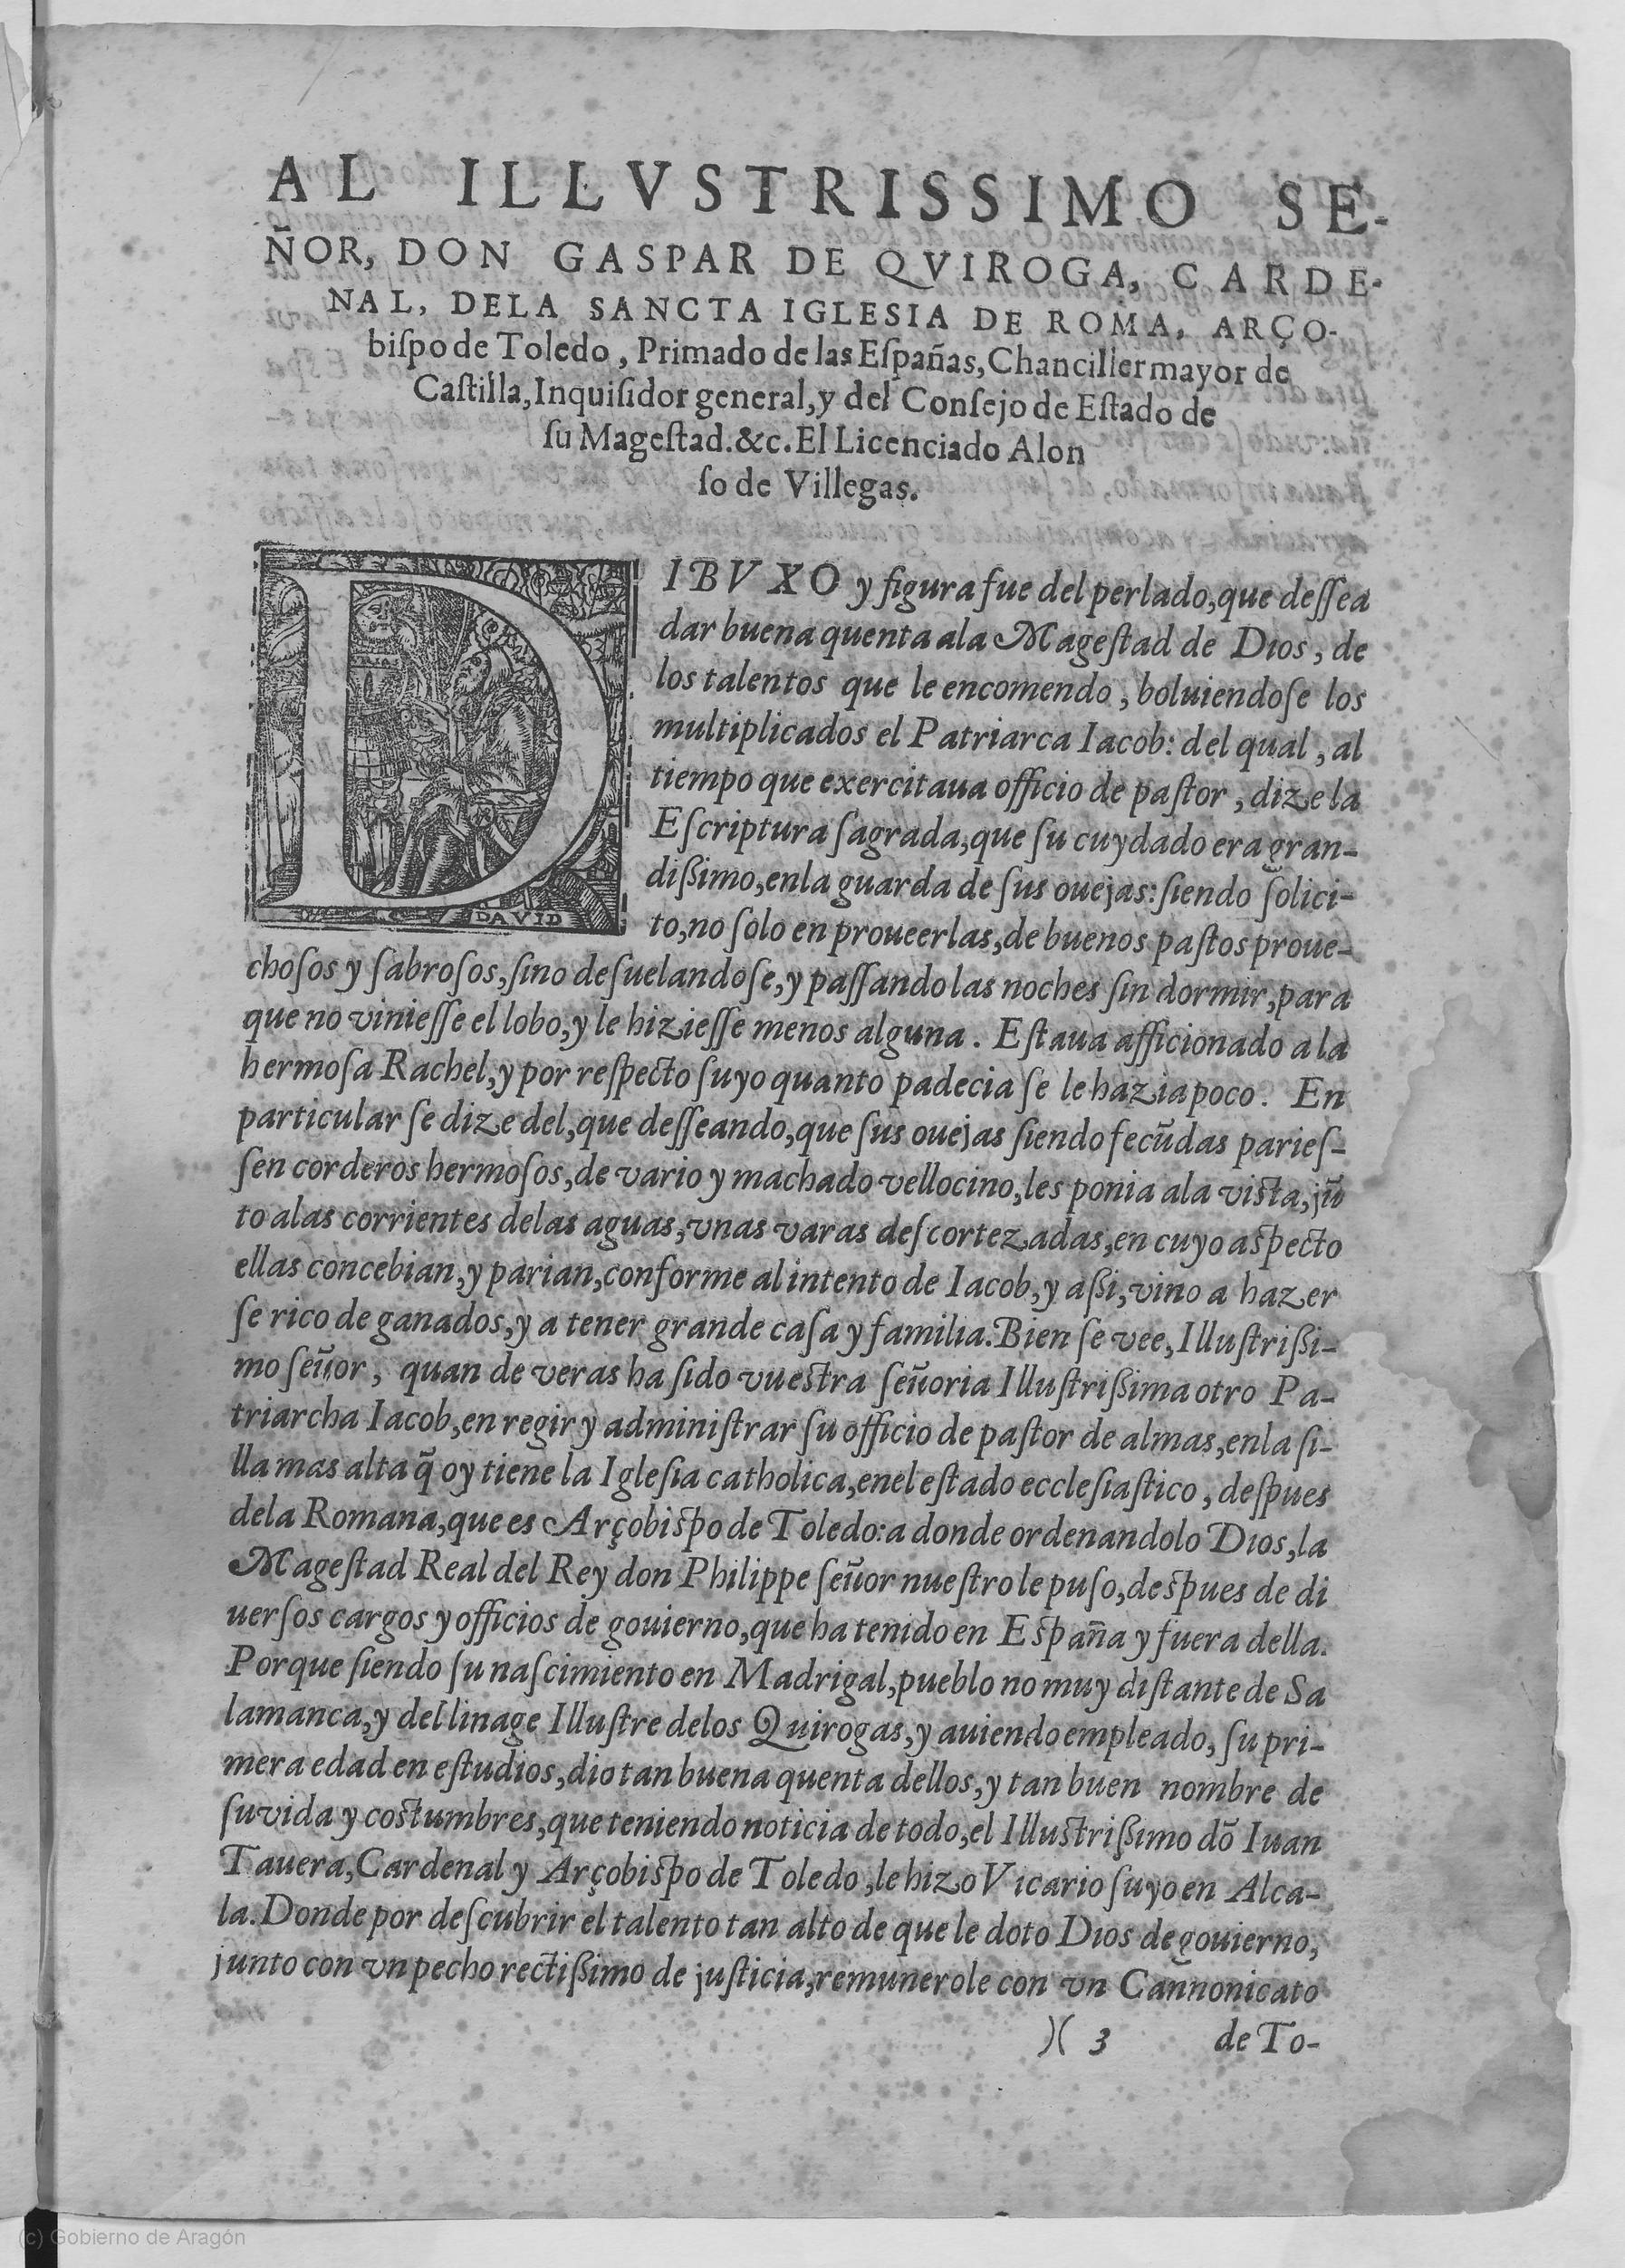 AL ILLVSTRISSIMO SE-
ÑOR, DON GASPAR DE QVIROGA, CARDE-
NAL, DELA SANCTA IGLESIA DE ROMA, ARÇO-
biſpo de Toledo, Primado de las Eſpañas, Chanciller mayor de
Caſtilla, Inquiſidor general, y del Conſejo de Eſtado de
ſu Mageſtad. &c. El Licenciado Alon
ſo de Villegas.
DIBVXO y figura fue del perlado, que deſſea
dar buena quenta ala Mageſtad de Dios, de
los talentos que le encomendo, boluiendoſe los
multiplicados el Patriarca Iacob: del qual, al
tiempo que exercitaua officio de paſtor, dize la
Eſcriptura ſagrada, que ſu cuydado era gran-
diſsimo, enla guarda de ſus ouejas: ſiendo ſolici-
to, no ſolo en proueerlas, de buenos paſtos proue-
DAVID
choſos y ſabroſos, ſino deſuelandoſe, y paſſando las noches ſin dormir, para
que no vinieſſe el lobo, y le hizieſſe menos alguna. Eſtaua afficionado a la
hermoſa Rachel, y por reſpecto ſuyo quanto padecia ſe le hazia poco. En
particular ſe dize del, que deſſeando, que ſus ouejas ſiendo fecũdas parieſ-
ſen corderos hermoſos, de vario y machado vellocino, les ponia ala viſta, jũ
to alas corrientes delas aguas, vnas varas deſcortezadas, en cuyo aſpecto
ellas concebian, y parian, conforme al intento de Iacob, y aſsi, vino a hazer
ſe rico de ganados, y a tener grande caſa y familia. Bien ſe vee, Illuſtriſsi-
mo señor, quan de veras ha ſido vueſtra ſeñoria Illuſtriſsima otro Pa-
triarcha Iacob, en regir y adminiſtrar ſu officio de paſtor de almas, enla ſi-
lla mas alta q̃ oy tiene la Igleſia catholica, enel eſtado eccleſiaſtico, deſpues
dela Romana, que es Arçobiſpo de Toledo: a donde ordenandolo Dios, la
Mageſtad Real del Rey don Philippe ſeñor nueſtro le puſo, deſpues de di
uerſos cargos y officios de gouierno, que ha tenido en Eſpaña y fuera della.
Porque ſiendo ſu naſcimiento en Madrigal, pueblo no muy diſtante de Sa
lamanca, y del linage Illuſtre delos Quirogas, y auiendo empleado, ſu pri-
mera edad en eſtudios, dio tan buena quenta dellos, y tan buen nombre de
ſu vida y coſtumbres, que teniendo noticia de todo, el Illuſtriſsimo dõ Iuan
Tauera, Cardenal y Arçobiſpo de Toledo, le hizo Vicario ſuyo en Alca-
la. Donde por deſcubrir el talento tan alto de que le doto Dios de gouierno,
junto con vn pecho rectiſsimo de juſticia, remunerole con vn Cannonicato
)( 3 de To-
(c) Gobierno de Aragón